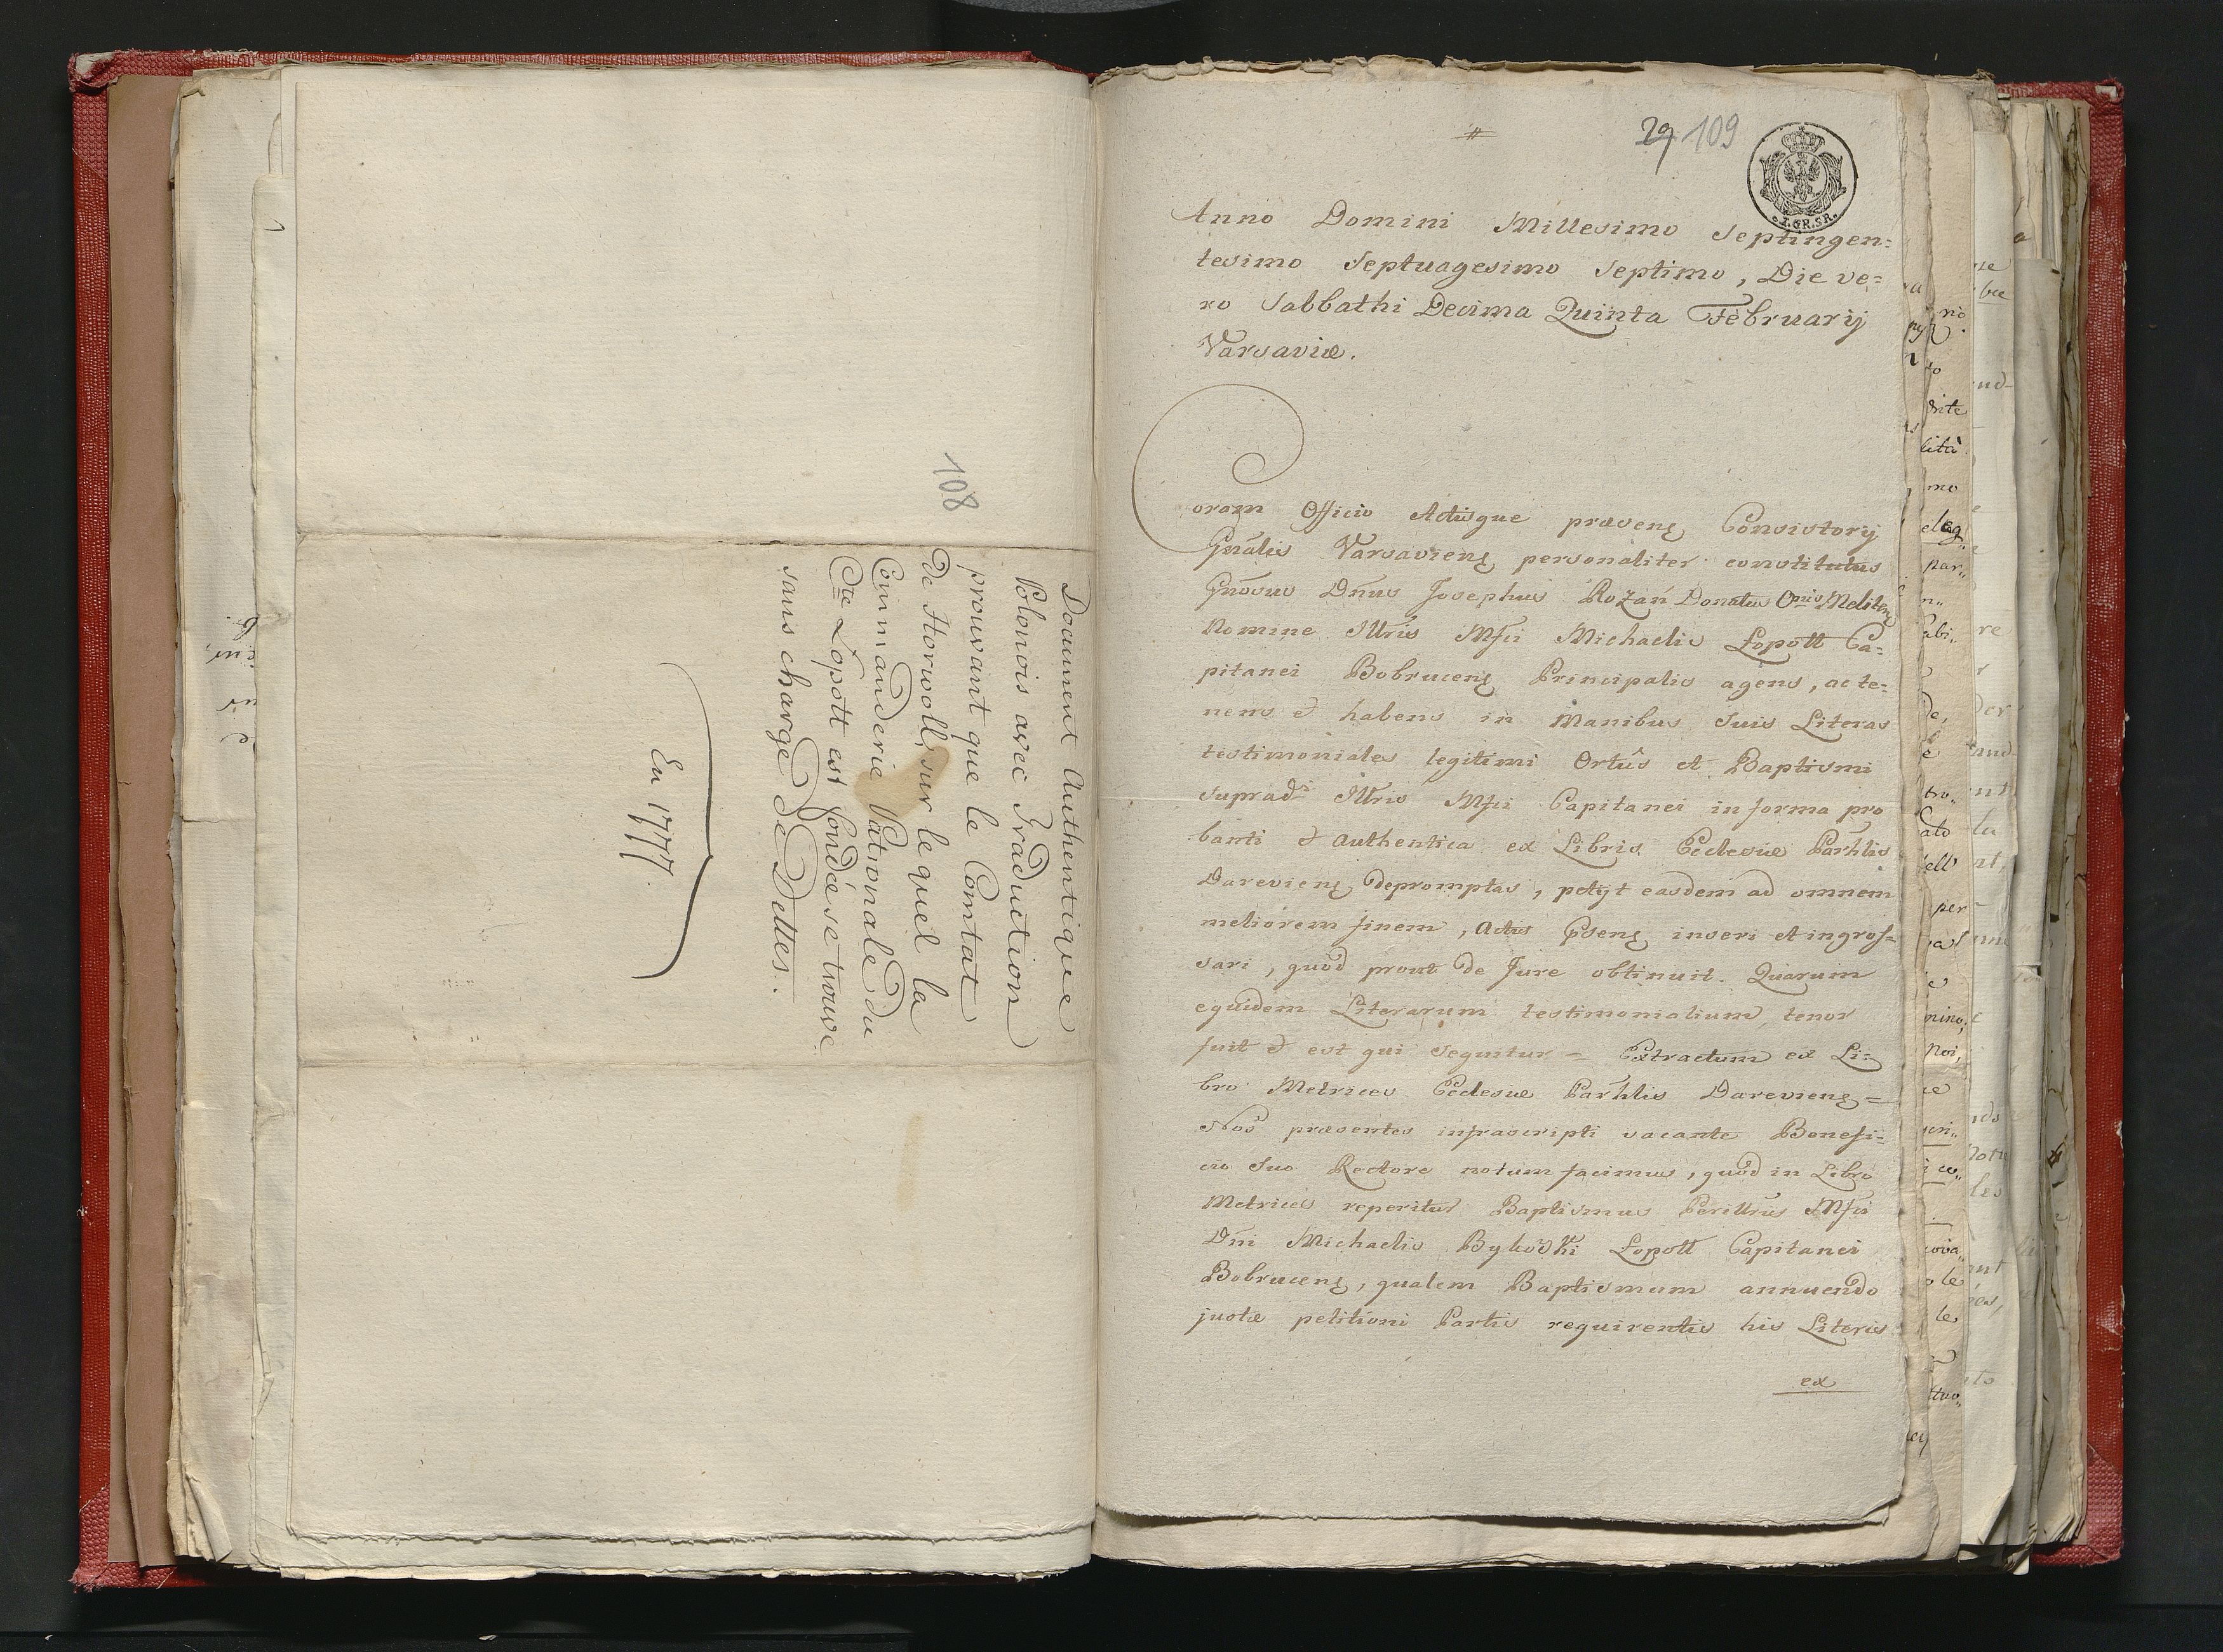 108
Document Authentique
Polonois avec Traduction
prouvant que le Contrat
de Horwoll, sur lequel la
Commanderie Patronale du
Cte Lopott est fondée se trouve
sans charge de Dettes.
En 1777.
29 109
I.GR.SR.
Anno Domini Millesimo Septingen=
tesimo Septuagesimo Septimo, Die ve=
ro Sabbathi Decima Quinta Februarij
Varsaviæ.
Coram Officio Actisque præsenę Consistorij
Gnalis Varsavienę personaliter constitutus
Gnosus Dnus Josephus Rozań Donatus Onis Melitenę
Nomine Illris Mfci Michaelis Łopott Ca=
pitanei Bobrucenę Principalis agens, ac te=
nens & habens in Manibus Suis Literas
testimoniales legitimi Ortûs et Baptismi
supradti Illris Mfci Capitanei in forma pro
banti & authentica ex Libris Ecclesiæ Parhlis
Darevienę depromptas, petijt easdem ad omnem
meliorem finem, Actis Psenę inseri et ingros=
sari, quod prout de Jure obtinuit. Quarum
equidem Literarum testimonialium, tenor
fuit & est qui sequitur = Extractum ex Li=
bro Metrices Ecclesiæ Parhlis Darevienę =
Nos præsentes infrascripti vacante Benefi=
cio suo Rectore notum facimus, quod in Libro
Metrices reperitur Baptismus Perillris Mfci
Dni Michaelis Bykoski Łopott Capitanei
Bobrucenę, qualem Baptismum annuendo
justæ petitioni Partis requirentis his Literis
ex